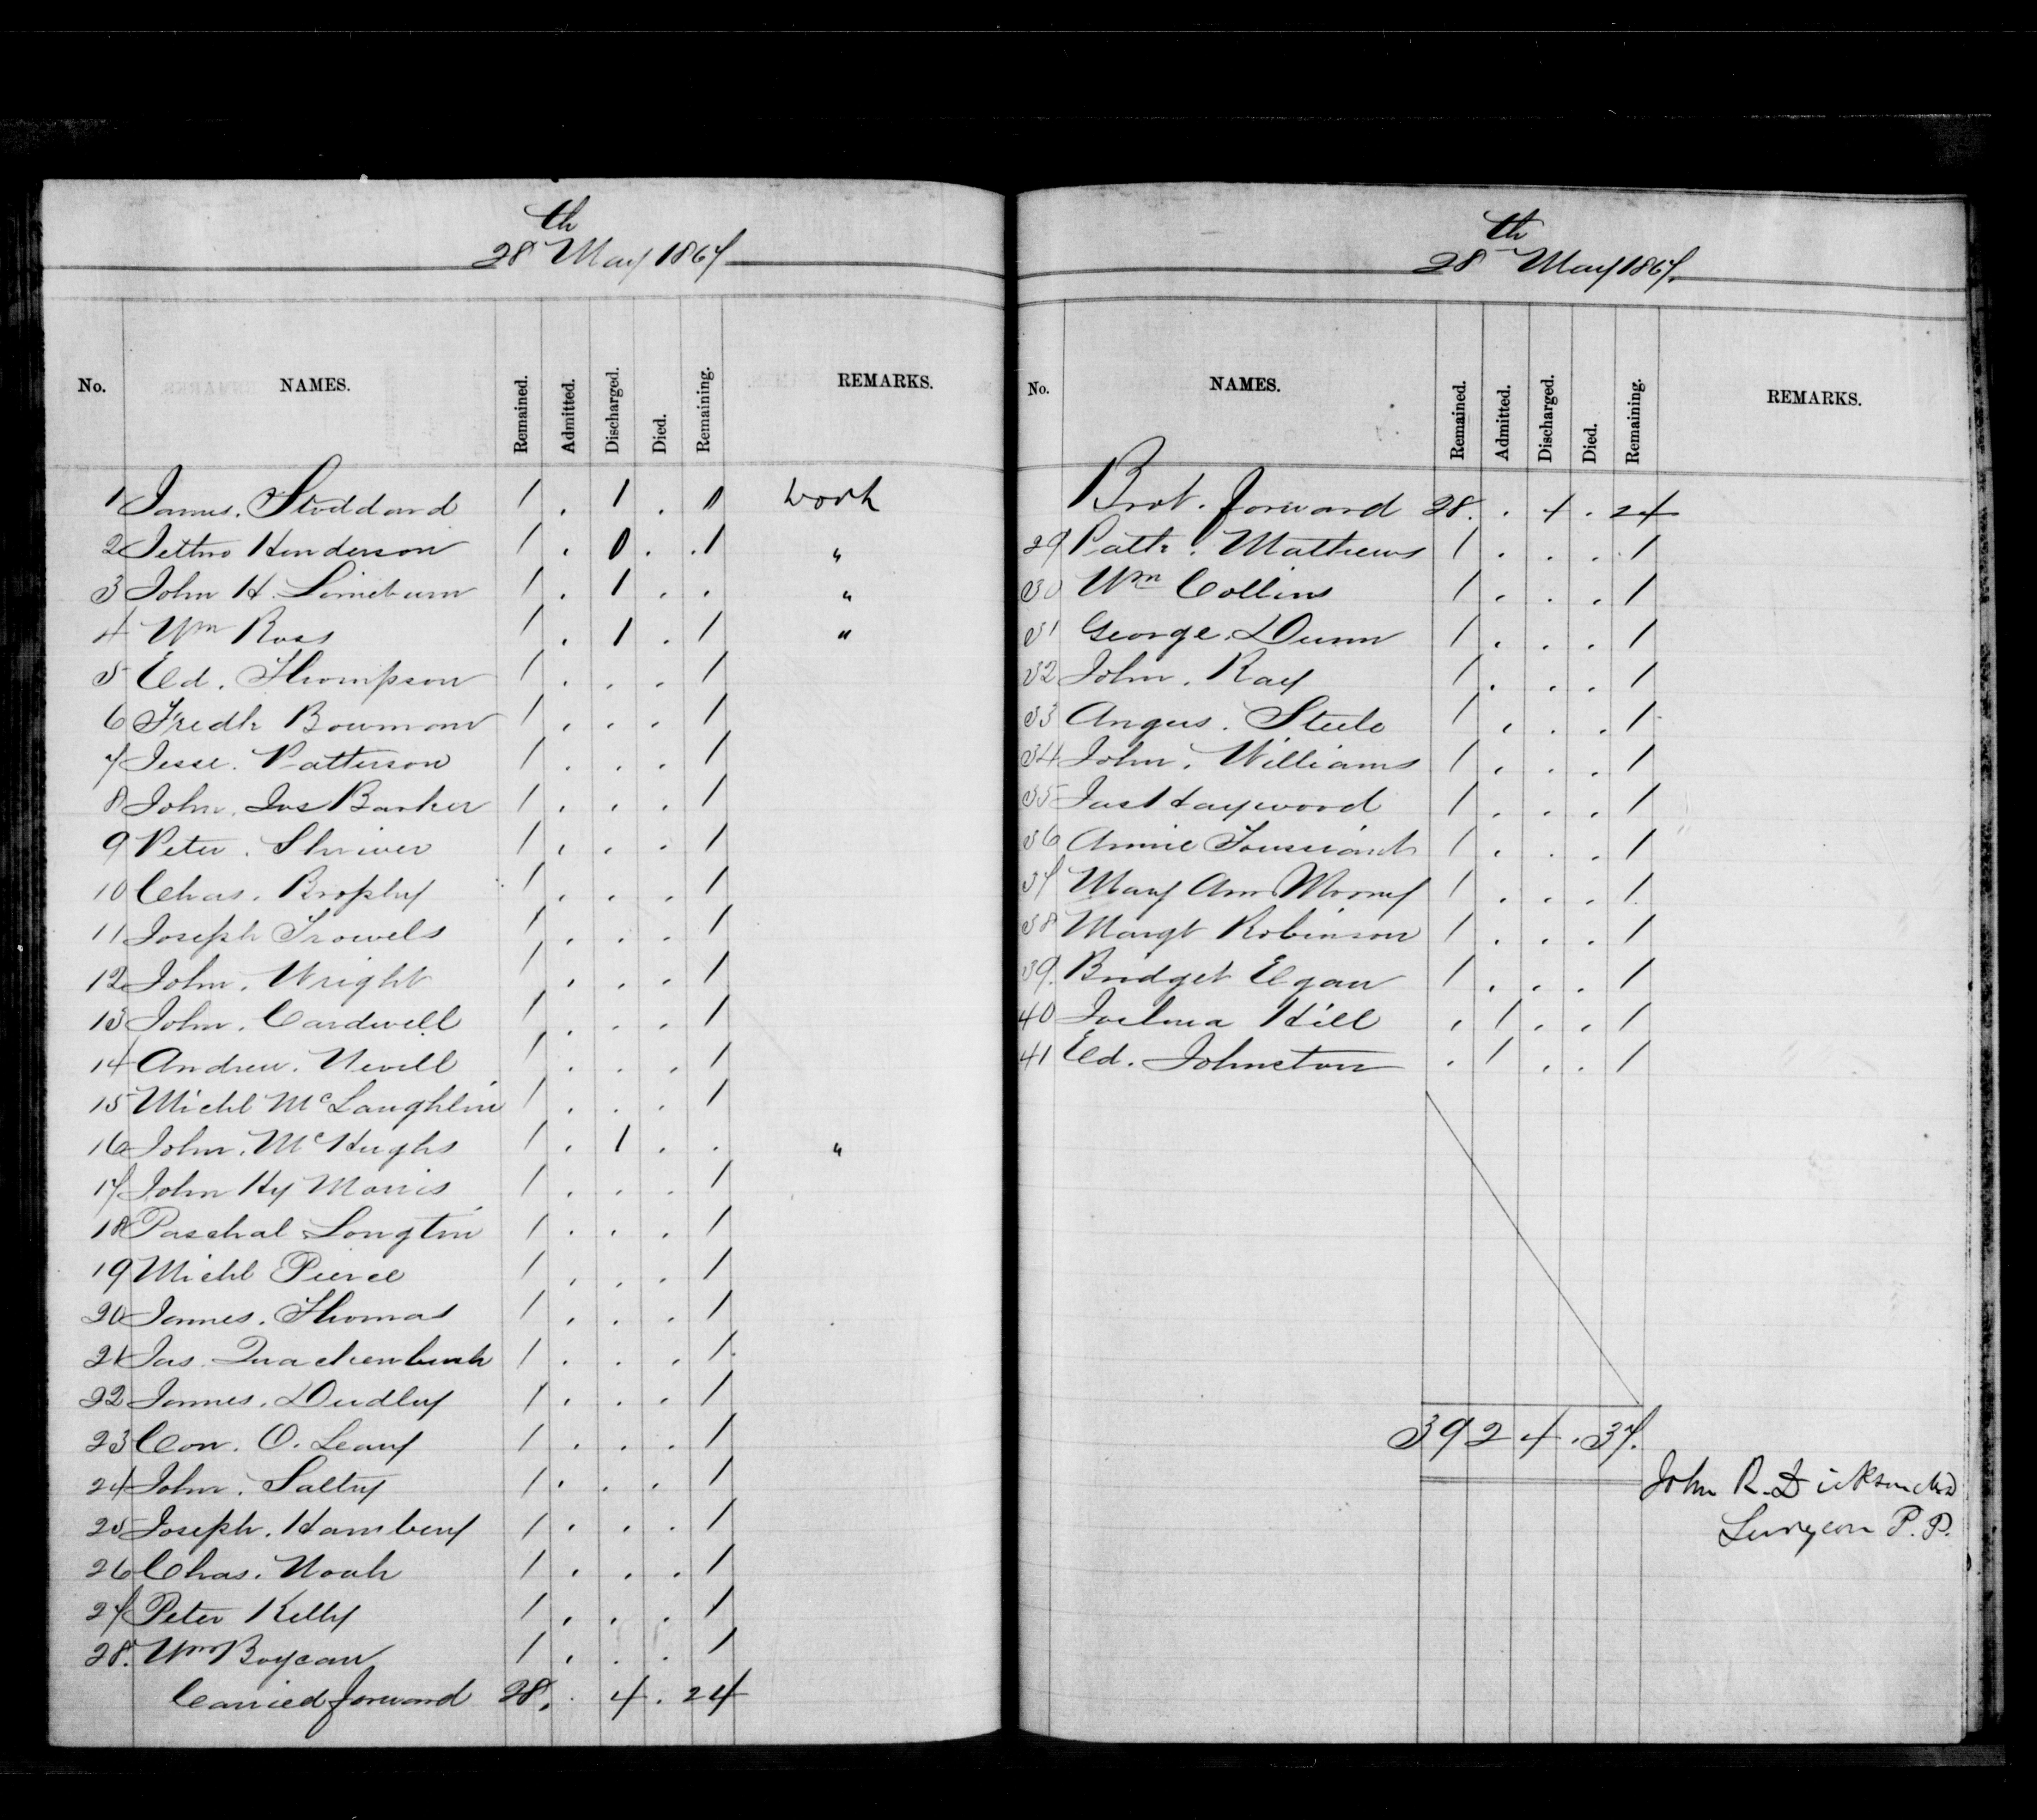 28th May 1867
No. NAMES. Remained. Admitted. Discharged. Died. Remaining. REMARKS.
1 James. Stoddard 1 . 1 . 0 work
2 Jethro Henderson 1 . 0 . . 1 "
3 John H. Limeburn 1 . 1 . . "
4 Wm Ross 1 . 1 . 1 "
5 Ed. Thompson 1 . . . 1
6 Fredk Bowman 1 . . . 1
7 Jesse. Patterson 1 . . . 1
8 John. Jos Barker 1 . . . 1
9 Peter. Shriver 1 . . . 1
10 Chas. Brophy 1 . . . 1
11 Joseph Trowels 1 . . . 1
12 John. Wright 1 . . . 1
13 John. Cardwell 1 . . . 1
14 Andrew. Nevill 1 . . . 1
15 Michl McLaughlin 1 . . . 1
16 John. McHughs 1 . 1 . . "
17 John Hy Morris 1 . . . 1
18 Paschal Longtin 1 . . . 1
19 Michl Pierce 1 . . . 1
20 James. Thomas 1 . . . 1
21 Jas. Quackenbush 1 . . . 1
22 James. Dudley 1 . . . 1
23 Con. O. Leary 1 . . . 1
24 John. Saltry 1 . . . 1
25 Joseph. Hambery 1 . . . 1
26 Chas. Noah 1 . . . 1
27 Peter Kelly 1 . . . 1
28. Wm Boycan 1 . . . 1
Carried forward 28. . 4 . 24
28th May 1867.
No. NAMES. Remained. Admitted. Discharged. Died. Remaining. REMARKS.
Brot. forward 28. . 4 . 24
29 Patk. Mathews 1 . . . 1
30 Wm Collins 1 . . . 1
31 George. Dunn 1 . . . 1
32 John. Ray 1 . . . 1
33 Angus. Steele 1 . . . 1
34 John. Williams 1 . . . 1
35 Jas Haywood 1 . . . 1
36 Annie Toussiant 1 . . . 1
37 Mary Ann Mooney 1 . . . 1
38 Margt Robinson 1 . . . 1
39. Bridget Egan 1 . . . 1
40 Joshua Hill . 1 . . 1
41 Ed. Johnston . 1 . . 1
39 2 4 . 37.
John R. Dickson MD
Surgeon P. P.